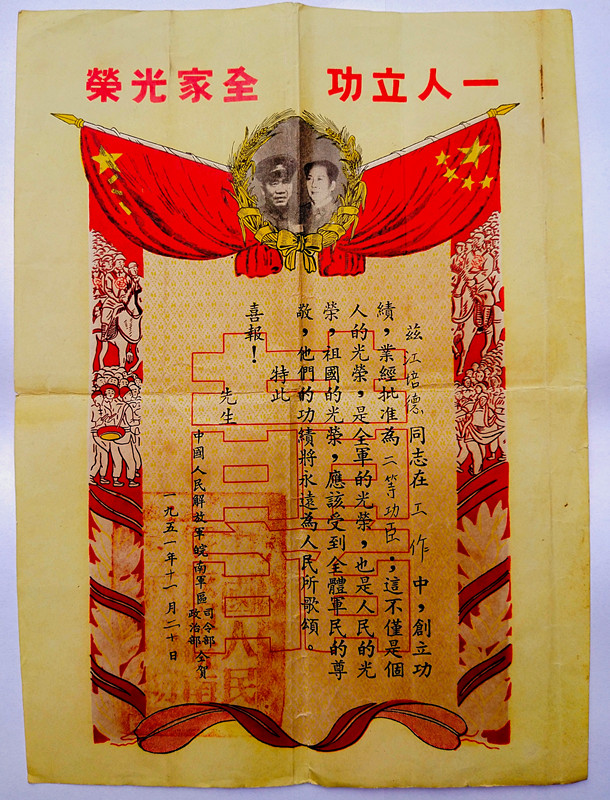 一人立功 全家光榮
茲江培德同志在工作中，創立功
績，業經批准為二等功臣，這不僅是個
人的光榮，是全軍的光榮，也是人民的光
榮，祖國的光榮，應該受到全體軍民的尊
敬，他們的功績將永遠為人民所歌頌。
特此
喜報！
先生
中國人民解放軍皖南軍區司令部政治部仝賀
一九五一年十一月二十日